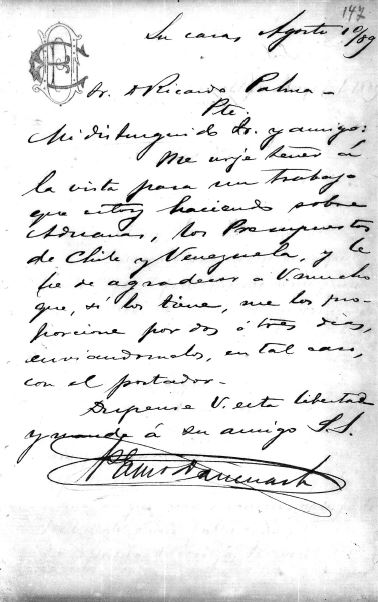 147
Su casa, Agosto 10/89
Sr. D Ricardo Palma -
Pte.
Mi distinguido Sr. y amigo:
Me urje tener á
la vista para un trabajo
que estoy haciendo sobre
Aduanas, los Presupuestos
de Chile y Venezuela, y le
he de agradecer a V. mucho
que, si los tiene, me los pro-
porcione por dos ó tres dias,
enviandomelos, en tal caso,
con el portador -
Dispense V. esta libertad
y mande á su amigo S.S.